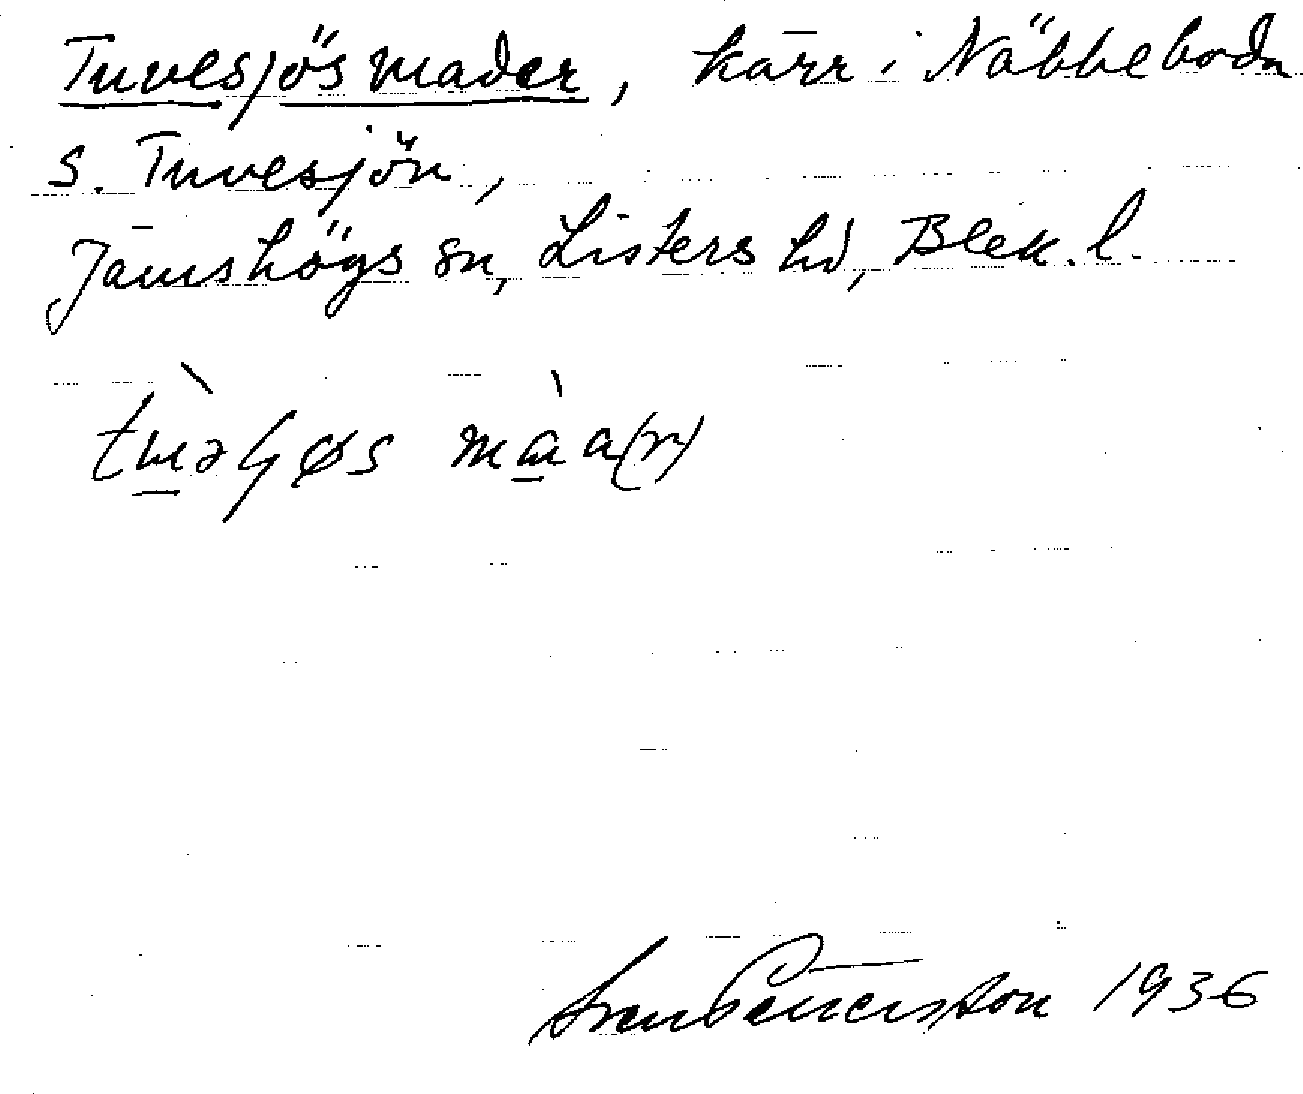 Tuvesjös mader, kärr i Näbbeboda
s. Tuvesjön,
Jämshögs sn, Listers hd, Blek. l.
1936